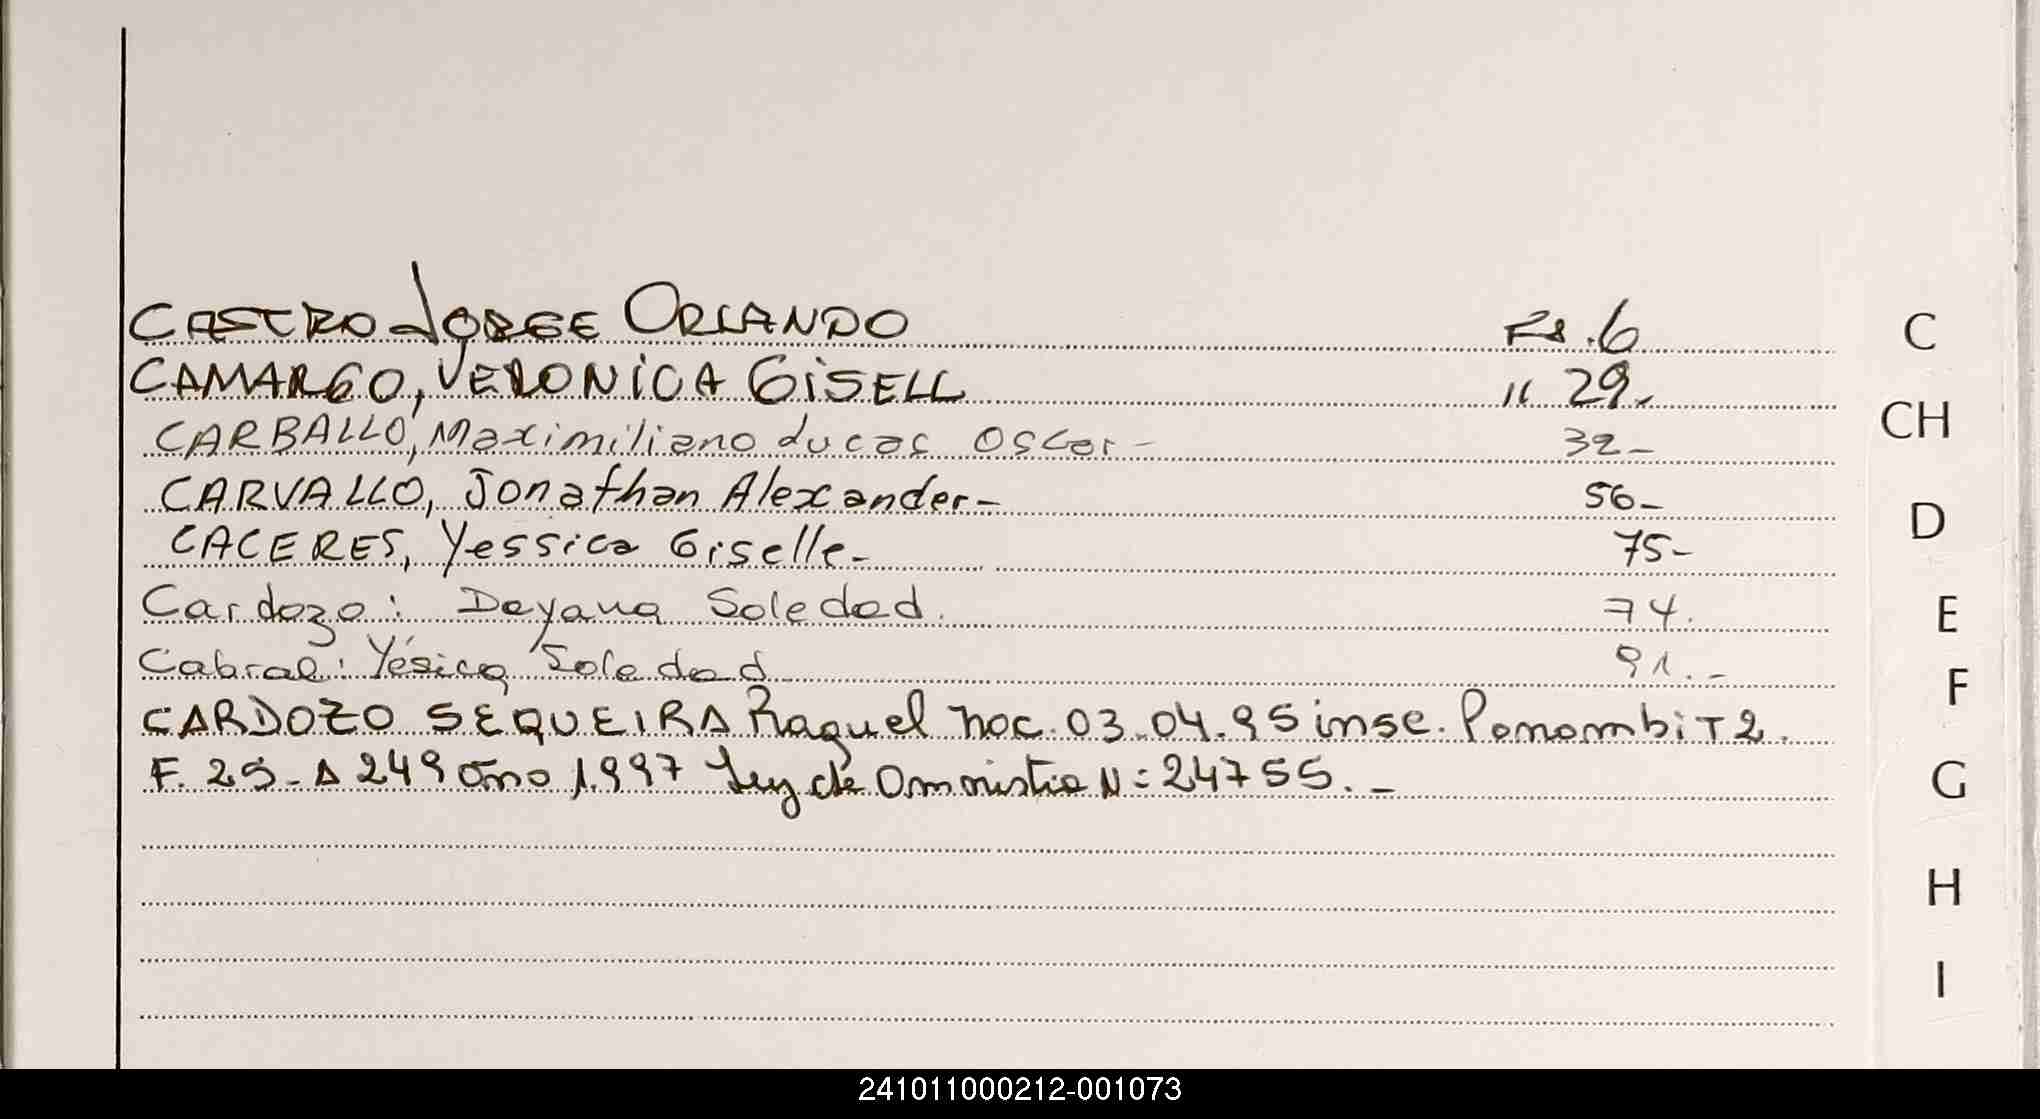 CASTRO JORGE ORLANDO Fs. 6 C
CAMARGO, VERONICA GISELL " 29.- CH
CARBALLO, Maximiliano Lucas Oscar - 32-
CARVALLO, Jonathan Alexander- 56- D
CACERES, Yessica Giselle- 75-
Cardozo: Dayana Soledad. 74. E
Cabral: Yésica Soledad 91.-
CARDOZO SEQUEIRA Raquel nac. 03.04.95 insc. Panambi T 2. F
F. 25- A 249 año 1.997 Ley de Amnistia N= 24755.- G
H
I
241011000212-001073